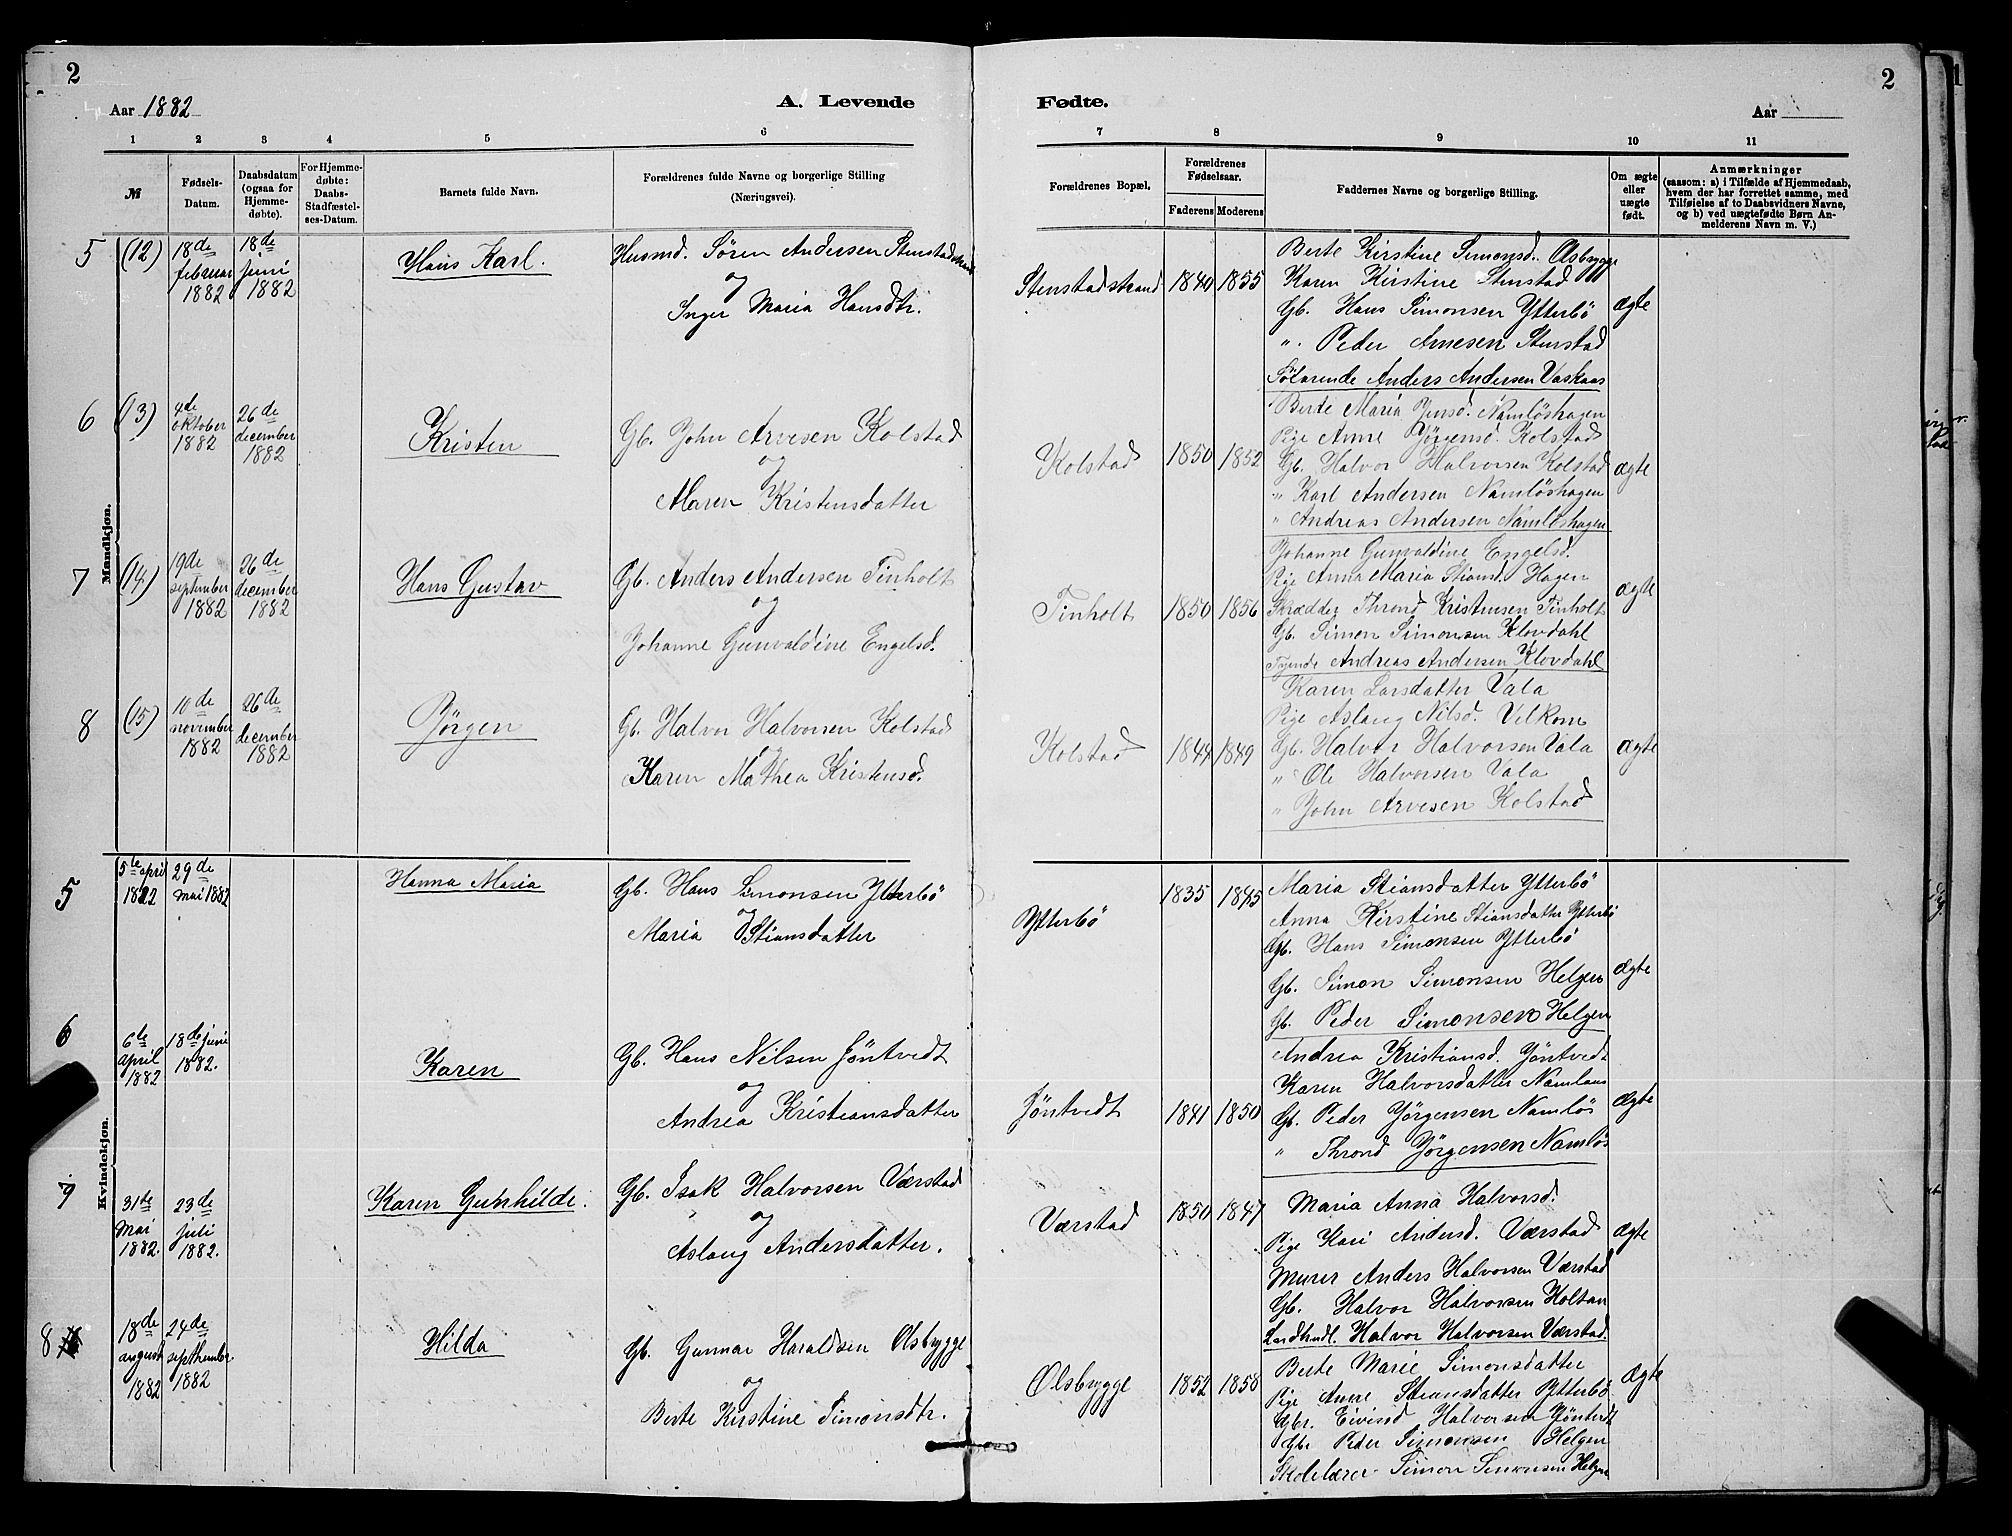 2
Aar 1882
A. Levende
Fødte.
Aar
2
1 2 3 4 5 6 7 8 9 10 11
№
Fødsels-
Datum.
Daabsdatum
(ogsaa for
Hjemme-
døbte).
For Hjemme-
døbte:
Daabs-
Stadfæstel-
ses-Datum.
Barnets fulde Navn.
Forældrenes fulde Navne og borgerlige Stilling
(Næringsvei).
Forældrenes Bopæl.
Forældrenes
Fødselsaar.
Faderens
Moderens
Faddernes Navne og borgerlige Stilling.
Om ægte
eller
uægte
født.
Anmærkninger
(saasom: a) i Tilfælde af Hjemmedaab,
hvem der har forrettet samme, med
Tilføielse af to Daabsvidners Navne,
og b) ved uægtefødte Børn An-
melderens Navn m. V.)
Mandkjøn.
5 (12)
18de
februar
1882
18de
juni
1882
Hans Karl.
Husmd. Søren Andersen Stenstadstrand
og
Inger Maria Hansdtr.
Stenstadstrand
1840
1855
Berte Kirstine Simonsd. Olsbrygge
Karen Kirstine Stenstad
Gb. Hans Simonsen Ytterbö
". Peder Arnesen Stenstad
Sölarende Anders Andersen Vaskaas
ægte
6 (13)
4de
oktober
1882
26de
december
1882
Kristen
Gb. John Arvesen Kolstad
og
Maren Kristensdatter
Kolstad
1850
1852
Berte Maria Jensd. Namlöshagen
Pige Anne Jörgensd. Kolstad
Gb. Halvor Halvorsen Kolstad
" Karl Andersen Namlöshagen
" Andreas Andersen Namlöshagen
ægte
7 (14)
19de
september
1882
26de
december
1882
Hans Gustav
Gb. Anders Andersen Tinholt
og
Johanne Gunvaldine Engelsd.
Tinholt
1850
1856
Johanne Gunvaldine Engelsd.
Pige Anna Maria Stiansd. Hagen
Skrædder Thrond Kristensen Tinholt
Gb. Simon Simonsen Klovdahl
Tyende Andreas Andersen Klovdahl
ægte
8 (15)
10de
november
1882
26de
december
1882
Jörgen
Gb. Halvor Halvorsen Kolstad
og
Karen Mathea Kristensd.
Kolstad
1844
1849
Karen Larsdatter Vala
Pige Aslaug Nilsd. Velkom
Gb. Halvor Halvorsen Vala
" Ole Halvorsen Vala
" John Arvesen Kolstad
ægte
Kvindekjøn.
5
5te april
1882
29de
mai 1882
Hanna Maria
Gb. Hans Simonsen Ytterbö
og
Maria Stiansdatter
Ytterbö
1835
1845
Maria Stiansdatter Ytterbö
Anna Kirstine Stiansdatter Ytterbö
Gb. Hans Simonsen Ytterbö
Gb. Simon Simonsen Helgen
Gb. Peder Simonsen Helgen
ægte
6
6te
april
1882
18de juni
1882.
Karen
Gb. Hans Nilsen Jöntvedt
og
Andrea Kristiansdatter
Jöntvedt
1841
1850
Andrea Kristiansd. Jöntvedt
Karen Halvorsdatter Namlaus
Gb. Peder Jörgensen Namlös
" Thrond Jörgensen Namlös
ægte
7
31te
Mai
1882.
23de
juli
1882.
Karen Gunhilde.
Gb. Isak Halvorsen Værstad
og
Aslaug Andersdatter.
Værstad
1850
1847
Maria Anna Halvorsd.
Pige Kari Andersd. Værstad
Murer Anders Halvorsen Værstad
Gb. Halvor Halvorsen Holtan
Landhndl. Halvor Halvorsen Værstad.
ægte
8
18de
august
1882
24de
septhember
1882
Hilda
Gb. Gunnar Haraldsen Olsbrygge
og
Berte Kirstine Simonsdtr.
Olsbrygge
1852
1858
Berte Marie Simonsdatter
Pige Anne Stiansdatter Ytterbö
Gbr. Eivind Halvorsen Jöntvedt
Gbr Peder Simonsen Helgen
Skolelærer Simon Simonsen Helgen
ægte